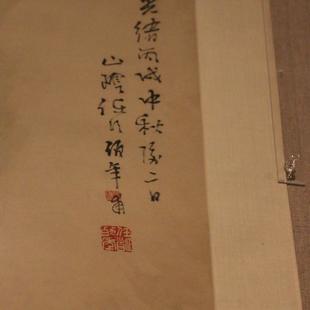 光緒丙戌中秋後二日
山陰任頤伯年甫